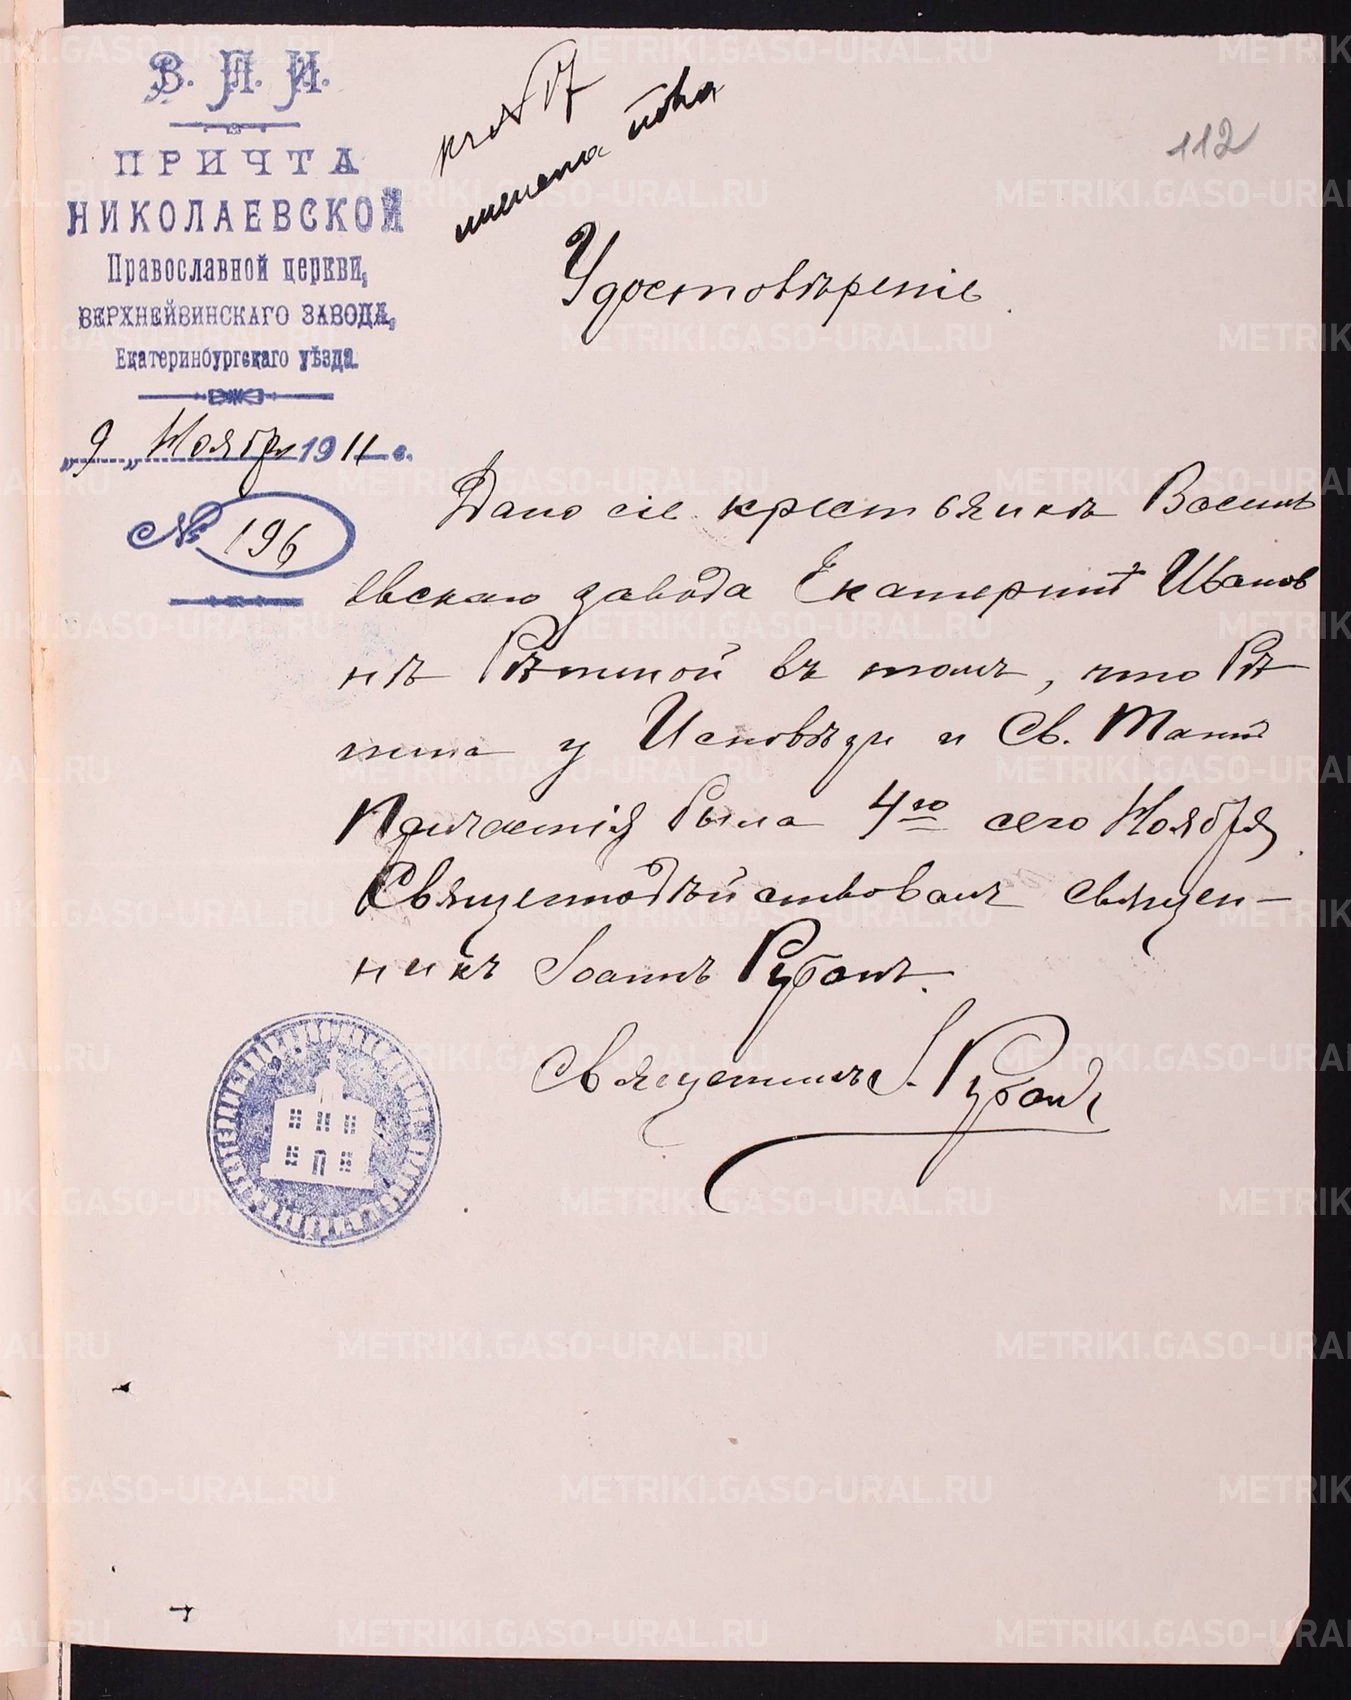 В. П. И.
ПРИЧТА
НИКОЛАЕВСКОЙ
Православной церкви,
ВЕРХНЕЙВИНСКАГО ЗАВОДА,
Екатеринбургскаго уѣзда.
„9„ Ноября 1911 г.
№ 196
къ № 17
112
Удостовѣреніе
Дано сіе крестьянкѣ Василь
евскаго завода Екатеринѣ Иванов
нѣ Рѣтиной въ томъ, что Рѣ
тина у Исповѣди и Св. Таинъ
Причастія была 4го сего Ноября.
Священнодѣйствовалъ священ-
никъ Іоаннъ Рубанъ.
Священникъ І. Рубанъ
METRIKI.GASO-URAL.RU